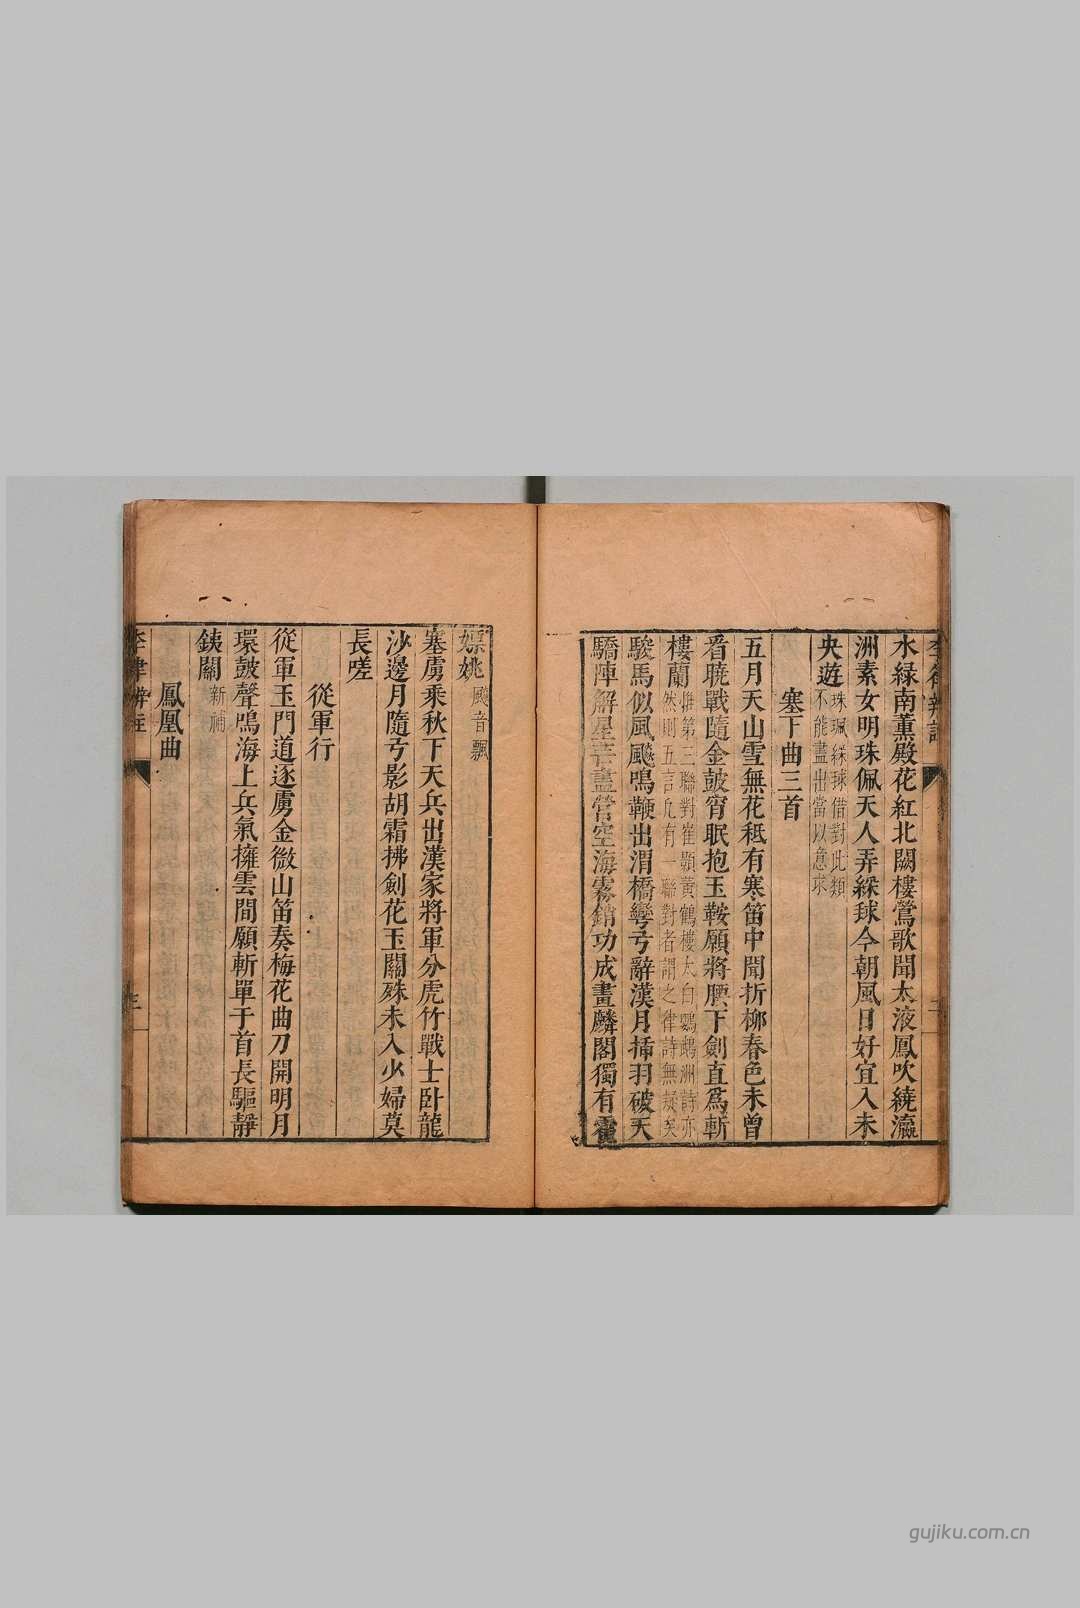 水緑南薰殿花紅北闕樓鶯歌聞太液鳳吹繞瀛
洲素女明珠佩天人弄綵毬今朝風日好宜入未
央遊
珠珮綵毬借對此類
不能盡出當以意求
塞下曲三首
五月天山雪無花秪有寒笛中聞折柳春色未曾
看曉戰隨金鼓宵眠抱玉鞍願將腰下劍直爲斬
樓蘭
惟第三聯對崔顥黃鶴樓太白鸚鵡洲詩亦
然則五言凡有一聯對者謂之律詩無疑矣
駿馬似風飈鳴鞭出渭橋彎弓辭漢月揷羽破天
驕陣解星芒盡營空海霧銷功成畫麟閣獨有霍
嫖姚
飈音飄
塞虜乘秋下天兵出漢家將軍分虎竹戰士卧龍
沙邊月隨弓影胡霜拂劍花玉關殊未入少婦莫
長嗟
從軍行
從軍玉門道逐虜金微山笛奏梅花曲刀開明月
環鼓聲鳴海上兵氣擁雲間願斬單于首長驅靜
銕關
新補
鳳凰曲
李律辨註
gujiku.com.cn